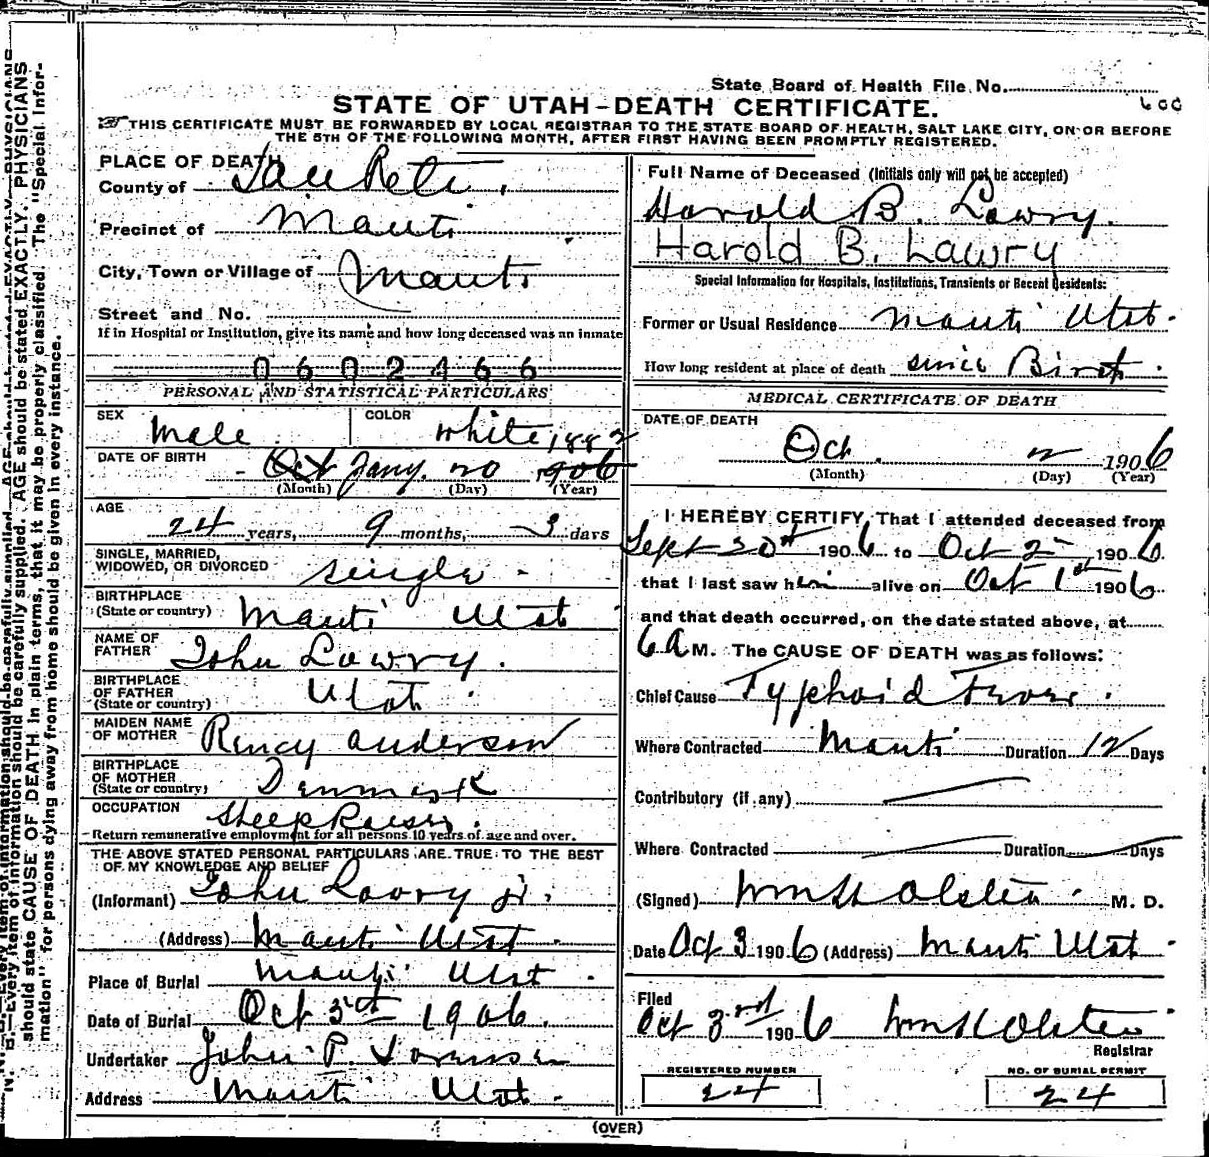 State Board of Health File No. 600
STATE OF UTAH-DEATH CERTIFICATE.
THIS CERTIFICATE MUST BE FORWARDED BY LOCAL REGISTRAR TO THE STATE BOARD OF HEALTH, SALT LAKE CITY, ON OR BEFORE
THE 5TH OF THE FOLLOWING MONTH, AFTER FIRST HAVING BEEN PROMPTLY REGISTERED.
PLACE OF DEATH
County of SanPete.
Precinct of Manti
City, Town or Village of Manti
Street and No.
If in Hospital or Institution, give its name and how long deceased was an inmate
0602466
PERSONAL AND STATISTICAL PARTICULARS
SEX Male COLOR White
DATE OF BIRTH Oct Jany. 20 1906 1882
(Month) (Day) (Year)
AGE
24 years, 9 months, 3 days
SINGLE, MARRIED,
WIDOWED, OR DIVORCED single
BIRTHPLACE
(State or country) Manti Utah
NAME OF
FATHER John Lowry.
BIRTHPLACE
OF FATHER
(State or country) Utah
MAIDEN NAME
OF MOTHER Anderson
BIRTHPLACE
OF MOTHER
(State or country) Denmark
OCCUPATION Sheep Raiser.
Return remunerative employment for all persons 10 years of age and over.
THE ABOVE STATED PERSONAL PARTICULARS ARE TRUE TO THE BEST
OF MY KNOWLEDGE AND BELIEF
(Informant) John Lowry Jr.
(Address) Manti Utah
Place of Burial Manti Utah
Date of Burial Oct 5th 1906.
Undertaker John P.
Address Manti Utah
Full Name of Deceased (Initials only will not be accepted)
Harold B. Lowry.
Harold B. Lawry
Special Information for Hospitals, Institutions, Transients or Recent Residents:
Former or Usual Residence Manti Utah.
How long resident at place of death since Birth.
MEDICAL CERTIFICATE OF DEATH
DATE OF DEATH
Oct. 2 1906
(Month) (Day) (Year)
I HEREBY CERTIFY, That I attended deceased from
Sept 20th 1906 to Oct 2 1906.
that I last saw him alive on Oct 1st 1906
and that death occurred, on the date stated above, at
6 A M. The CAUSE OF DEATH was as follows:
Chief Cause Typhoid Fever.
Where Contracted Manti Duration 12 Days
Contributory (if any)
Where Contracted Duration Days
(Signed) Wm H Olsten M. D.
Date Oct 3 1906 (Address) Manti Utah
Filed
Oct 3rd 1906 Wm H Olsten
Registrar
REGISTERED NUMBER
24
NO. OF BURIAL PERMIT
24
(OVER)
should state CAUSE OF DEATH in plain terms, that it may be properly classified. The "Special Infor-
mation" for persons dying away from home should be given in every instance.